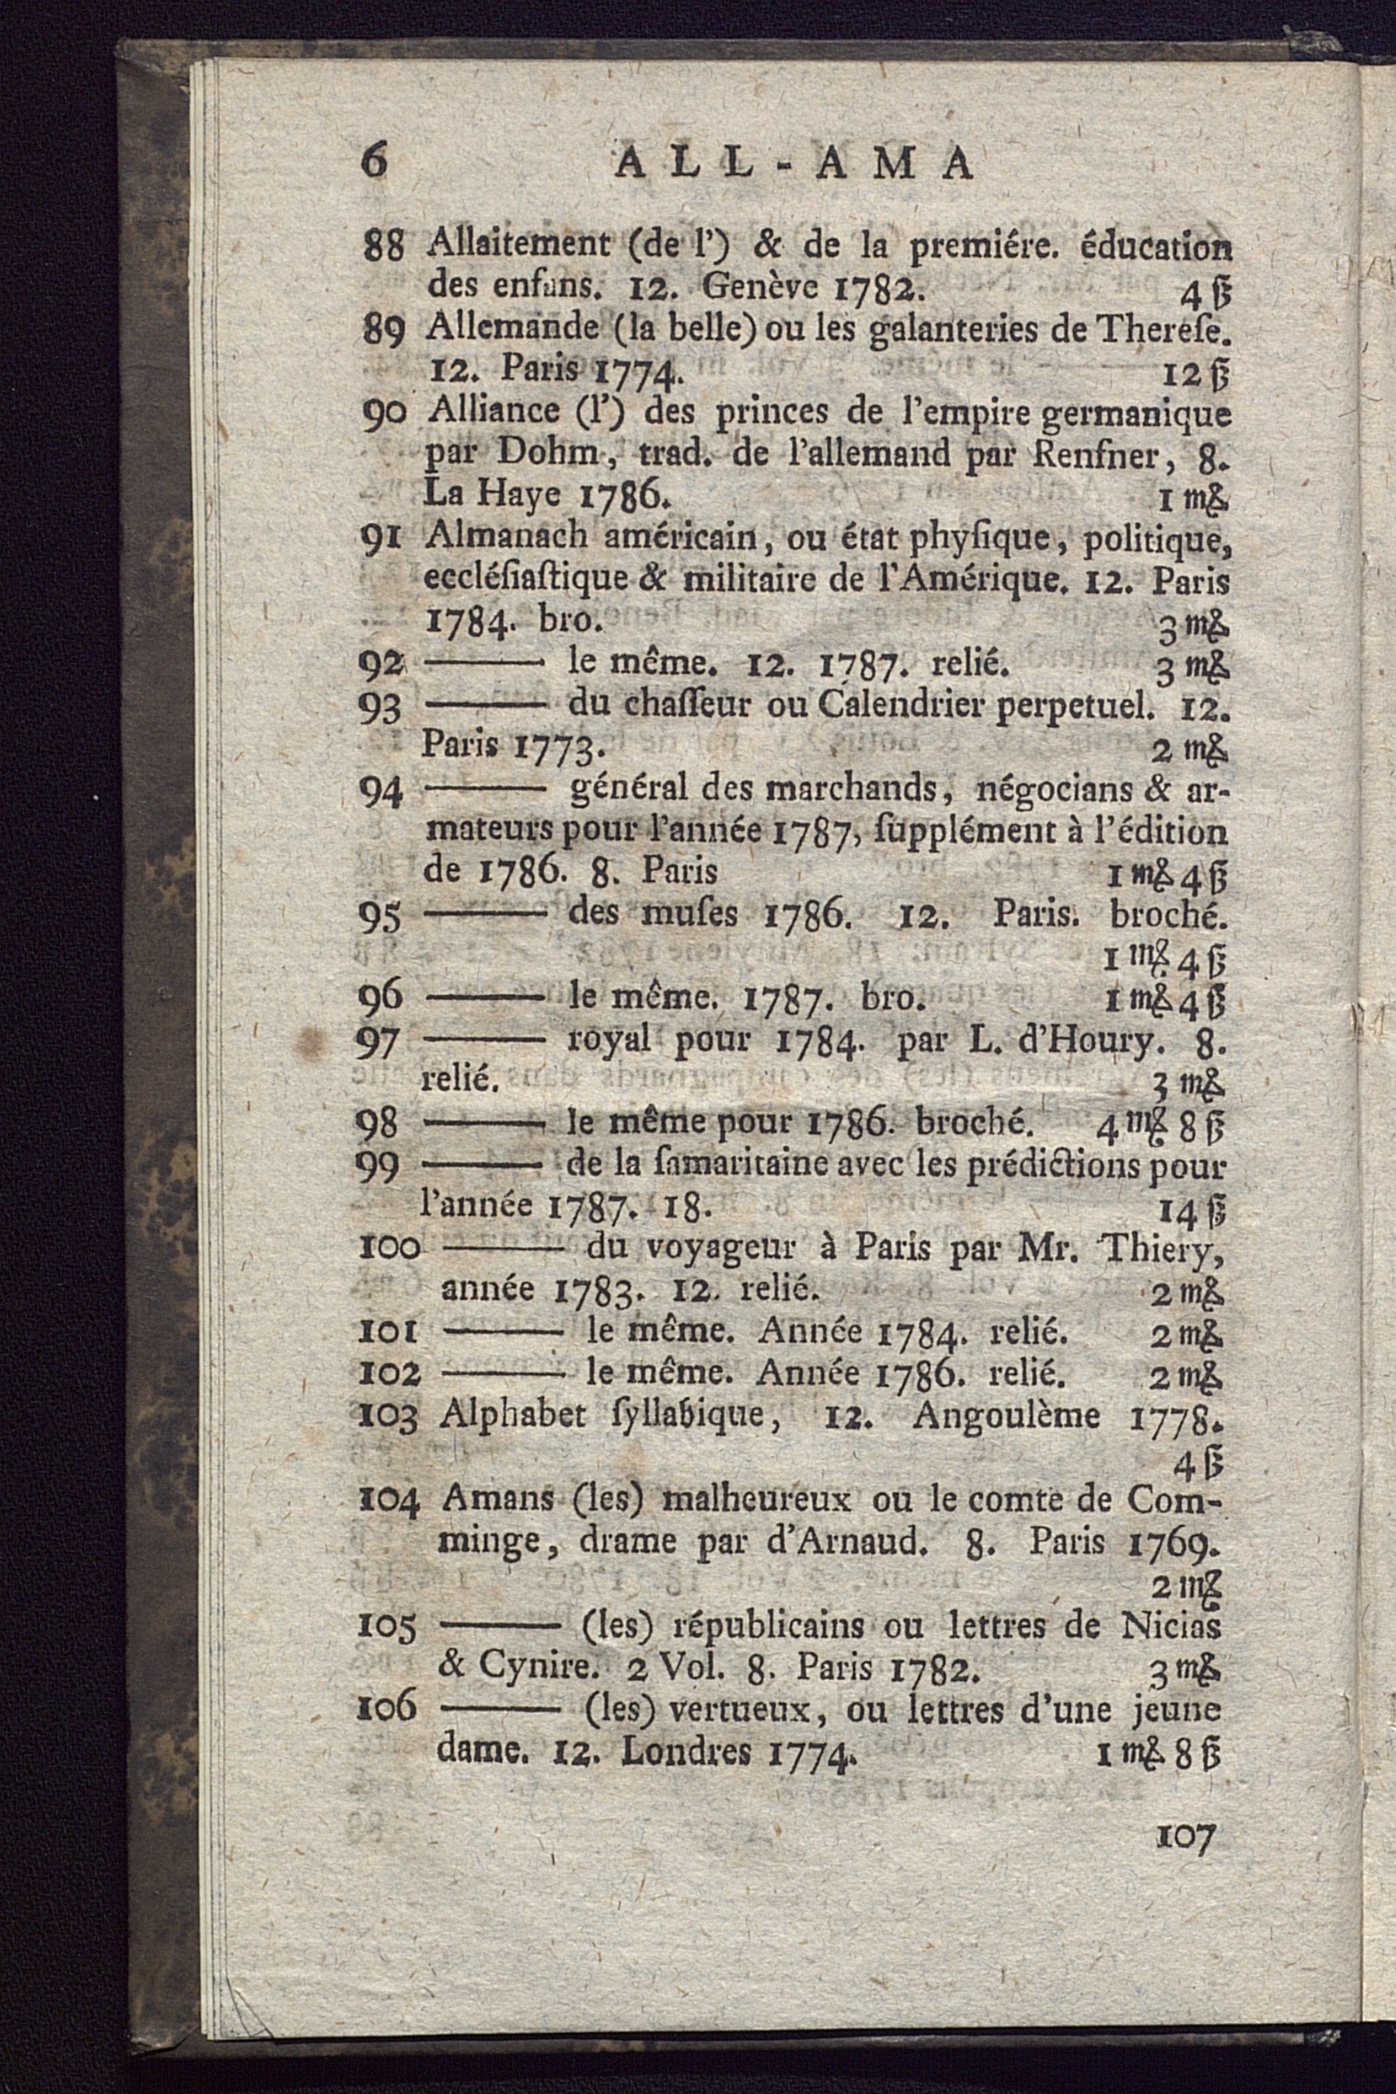 6 ALL-AMA
88 Allaitement (de l') & de la premiére. éducation
des enfans. 12. Genève 1782. 4 ß
89 Allemande (la belle) ou les galanteries de Thereſe.
12. Paris 1774. 12 ß
90 Alliance (l') des princes de l'empire germanique
par Dohm, trad. de l'allemand par Renfner, 8.
La Haye 1786. 1 m&
91 Almanach américain, ou état phyſique, politique,
eccléſiaſtique & militaire de l'Amérique. 12. Paris
1784. bro. 3 m&
92 ——— le même. 12. 1787. relié. 3 m&
93 ——— du chaſſeur ou Calendrier perpetuel. 12.
Paris 1773. 2 m&
94 ——— général des marchands, négocians & ar-
mateurs pour l'année 1787, ſupplément à l'édition
de 1786. 8. Paris 1 m& 4 ß
95 ——— des muſes 1786. 12. Paris. broché.
1 m& 4 ß
96 ——— le même. 1787. bro. 1 m& 4 ß
97 ——— royal pour 1784. par L. d'Houry. 8.
relié. 3 m&
98 ——— le même pour 1786. broché. 4 m& 8 ß
99 ——— de la ſamaritaine avec les prédictions pour
l'année 1787. 18. 14 ß
100 ——— du voyageur à Paris par Mr. Thiery,
année 1783. 12. relié. 2 m&
101 ——— le même. Année 1784. relié. 2 m&
102 ——— le même. Année 1786. relié. 2 m&
103 Alphabet ſyllabique, 12. Angoulème 1778.
4 ß
104 Amans (les) malheureux ou le comte de Com-
minge, drame par d'Arnaud. 8. Paris 1769.
2 m&
105 ——— (les) républicains ou lettres de Nicias
& Cynire. 2 Vol. 8. Paris 1782. 3 m&
106 ——— (les) vertueux, ou lettres d'une jeune
dame. 12. Londres 1774. 1 m& 8 ß
107